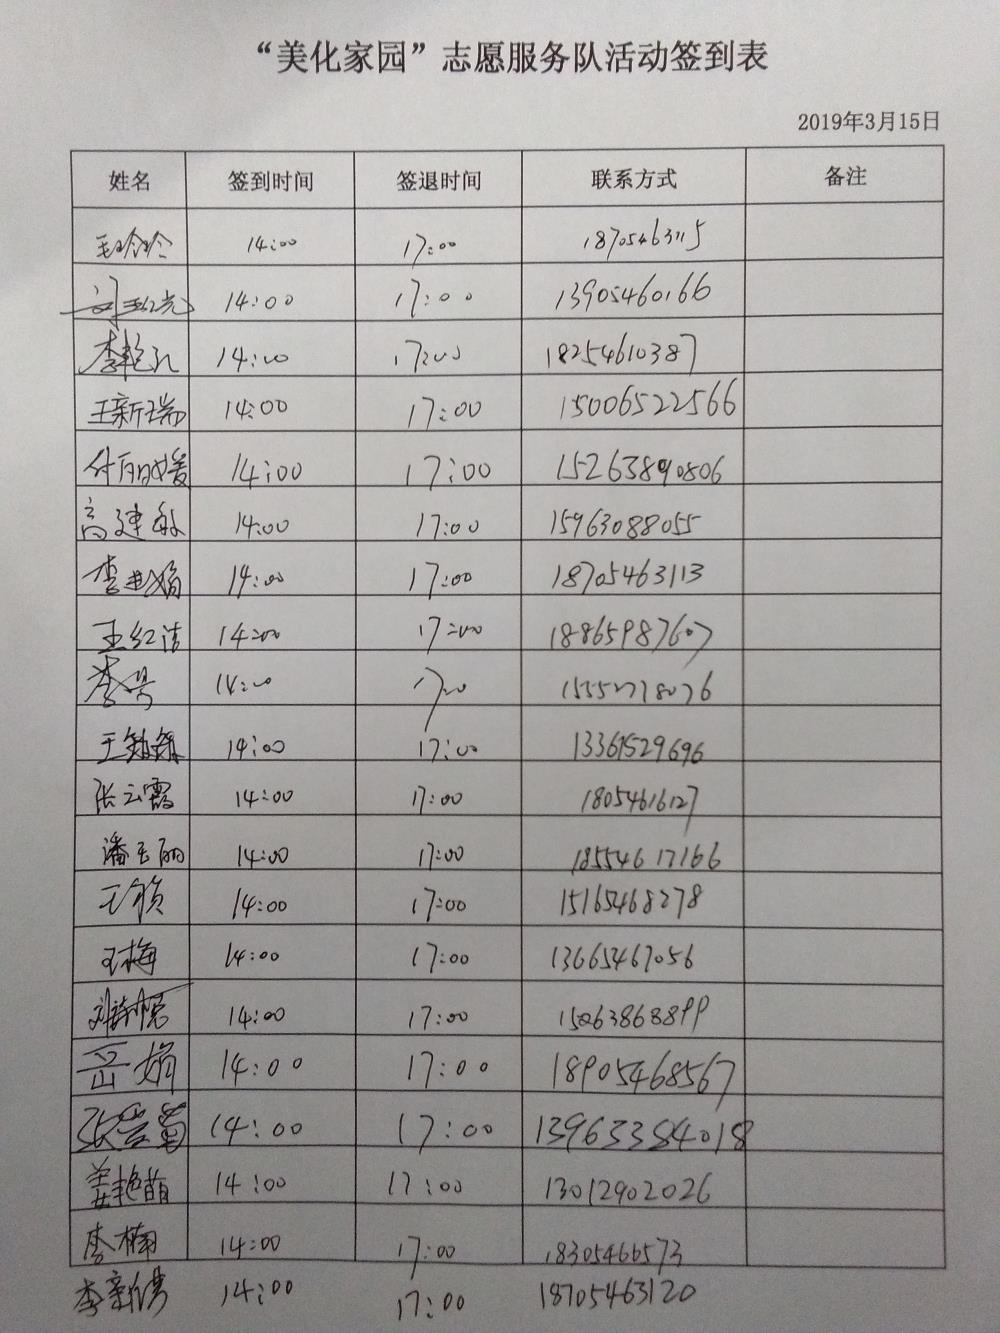 “美化家园”志愿服务队活动签到表
2019年3月15日
姓名 签到时间 签退时间 联系方式 备注
毛玲玲 14:00 17:00 18705463115
14:00 17:00 13905460166
李艳孔 14:00 17:00 18254610387
王新瑞 14:00 17:00 15006522566
付丽媛 14:00 17:00 15263890806
高建敏 14:00 17:00 15963088055
李娟 14:00 17:00 18705463113
王红洁 14:00 17:00 18865987607
李 14:00 17:00
王 14:00 17:00 13361529696
张云霞 14:00 17:00 18054616127
潘玉丽 14:00 17:00 18554617166
王颖 14:00 17:00 15165468278
王梅 14:00 17:00 13665467056
刘 14:00 17:00 15263868899
岳娟 14:00 17:00 18905468567
张 14:00 17:00 13963354018
姜艳苗 14:00 17:00 13012902026
李楠 14:00 17:00 18305466573
李新 14:00 17:00 18705463120